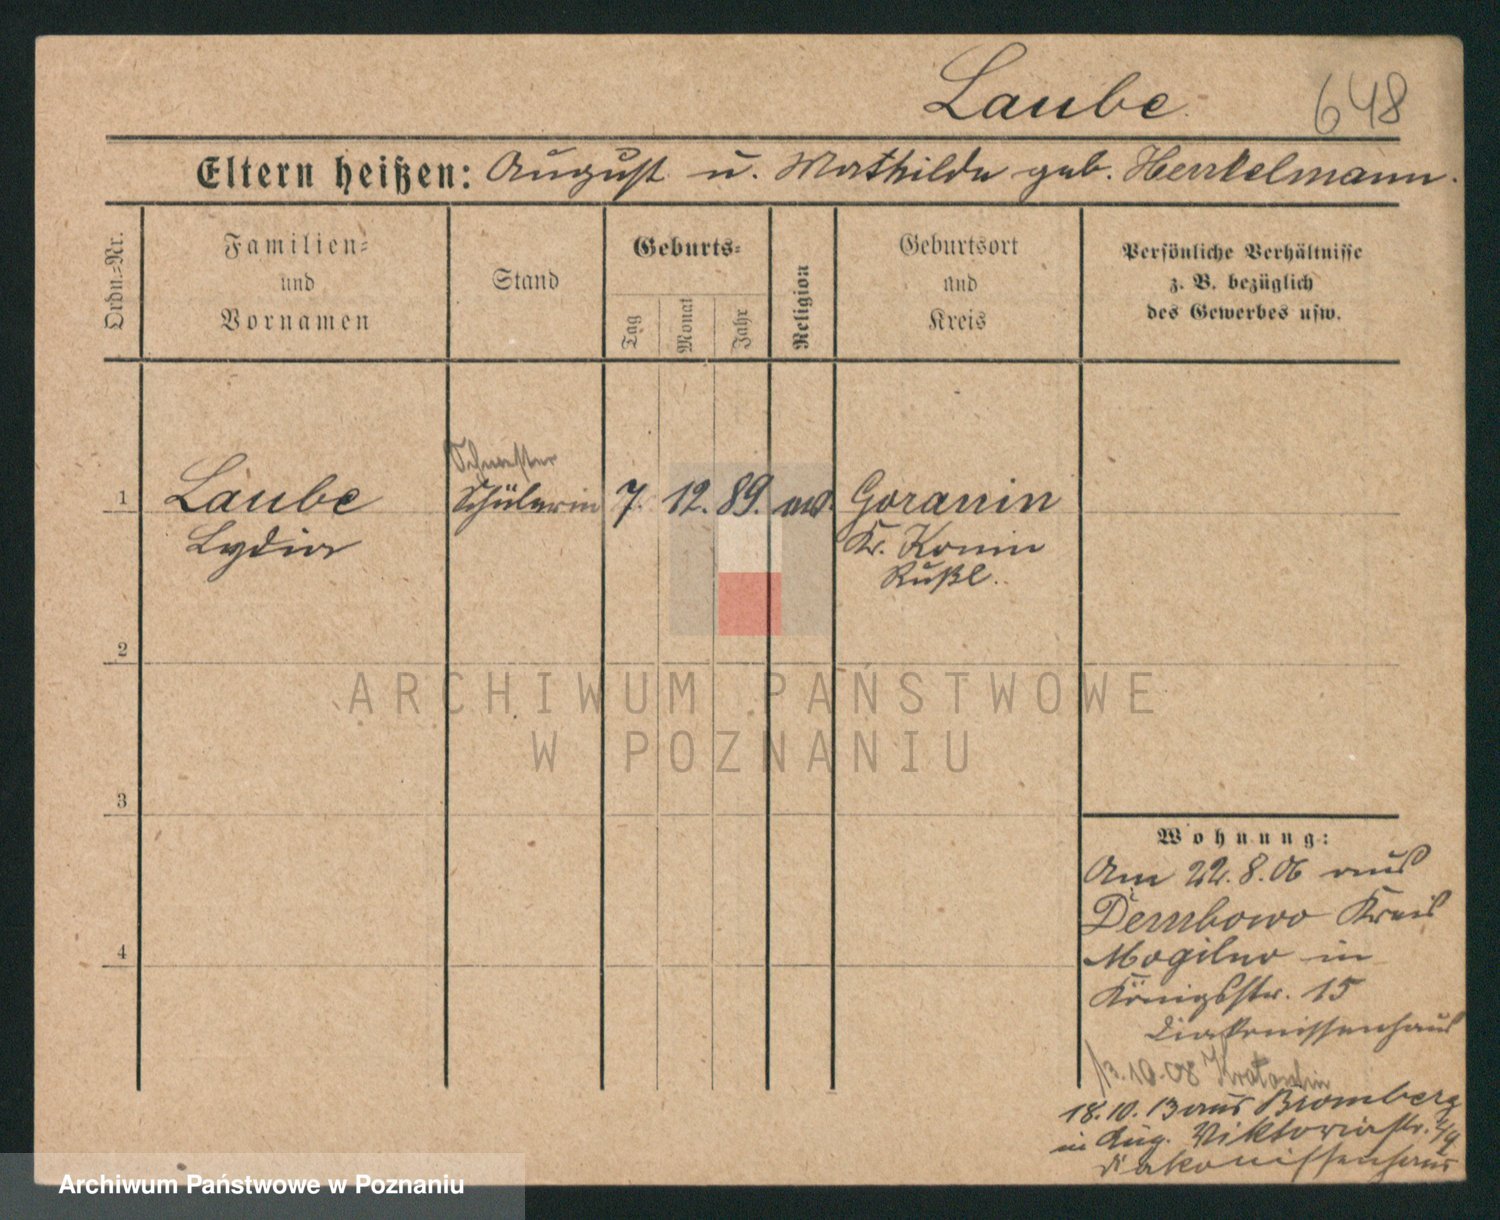 Laube
648
Eltern heißen: August u. Mathilde geb. Henkelmann.
Ordn.-Nr.
Familien-
und
Vornamen
Stand
Geburts-
Tag
Monat
Jahr
Religion
Geburtsort
und
Kreis
Persönliche Verhältnisse
z. B. bezüglich
des Gewerbes usw.
Schwester
1 Laube Schülerin 7. 12. 89. ev. Goranin
Lydia Kr. Konin
Rußl.
2
3
4
Wohnung:
Am 22.8.06 aus
Dembowo Kreis
Mogilno in
Königsstr. 15
Diakonissenhaus
13.10.08 Krotoschin
18.10.13 aus Bromberg
in Aug. Viktoriastr.
Diakonissenhaus
ARCHIWUM PAŃSTWOWE
W POZNANIU
Archiwum Państwowe w Poznaniu